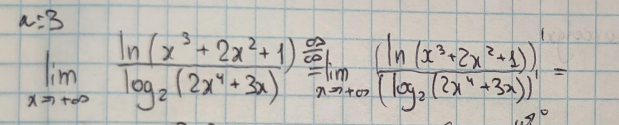 n=3
lim x→+∞ ln(x³+2x²+1) / log₂(2x⁴+3x) =^(∞/∞) lim x→+∞ (ln(x³+2x²+1))' / (log₂(2x⁴+3x))' =